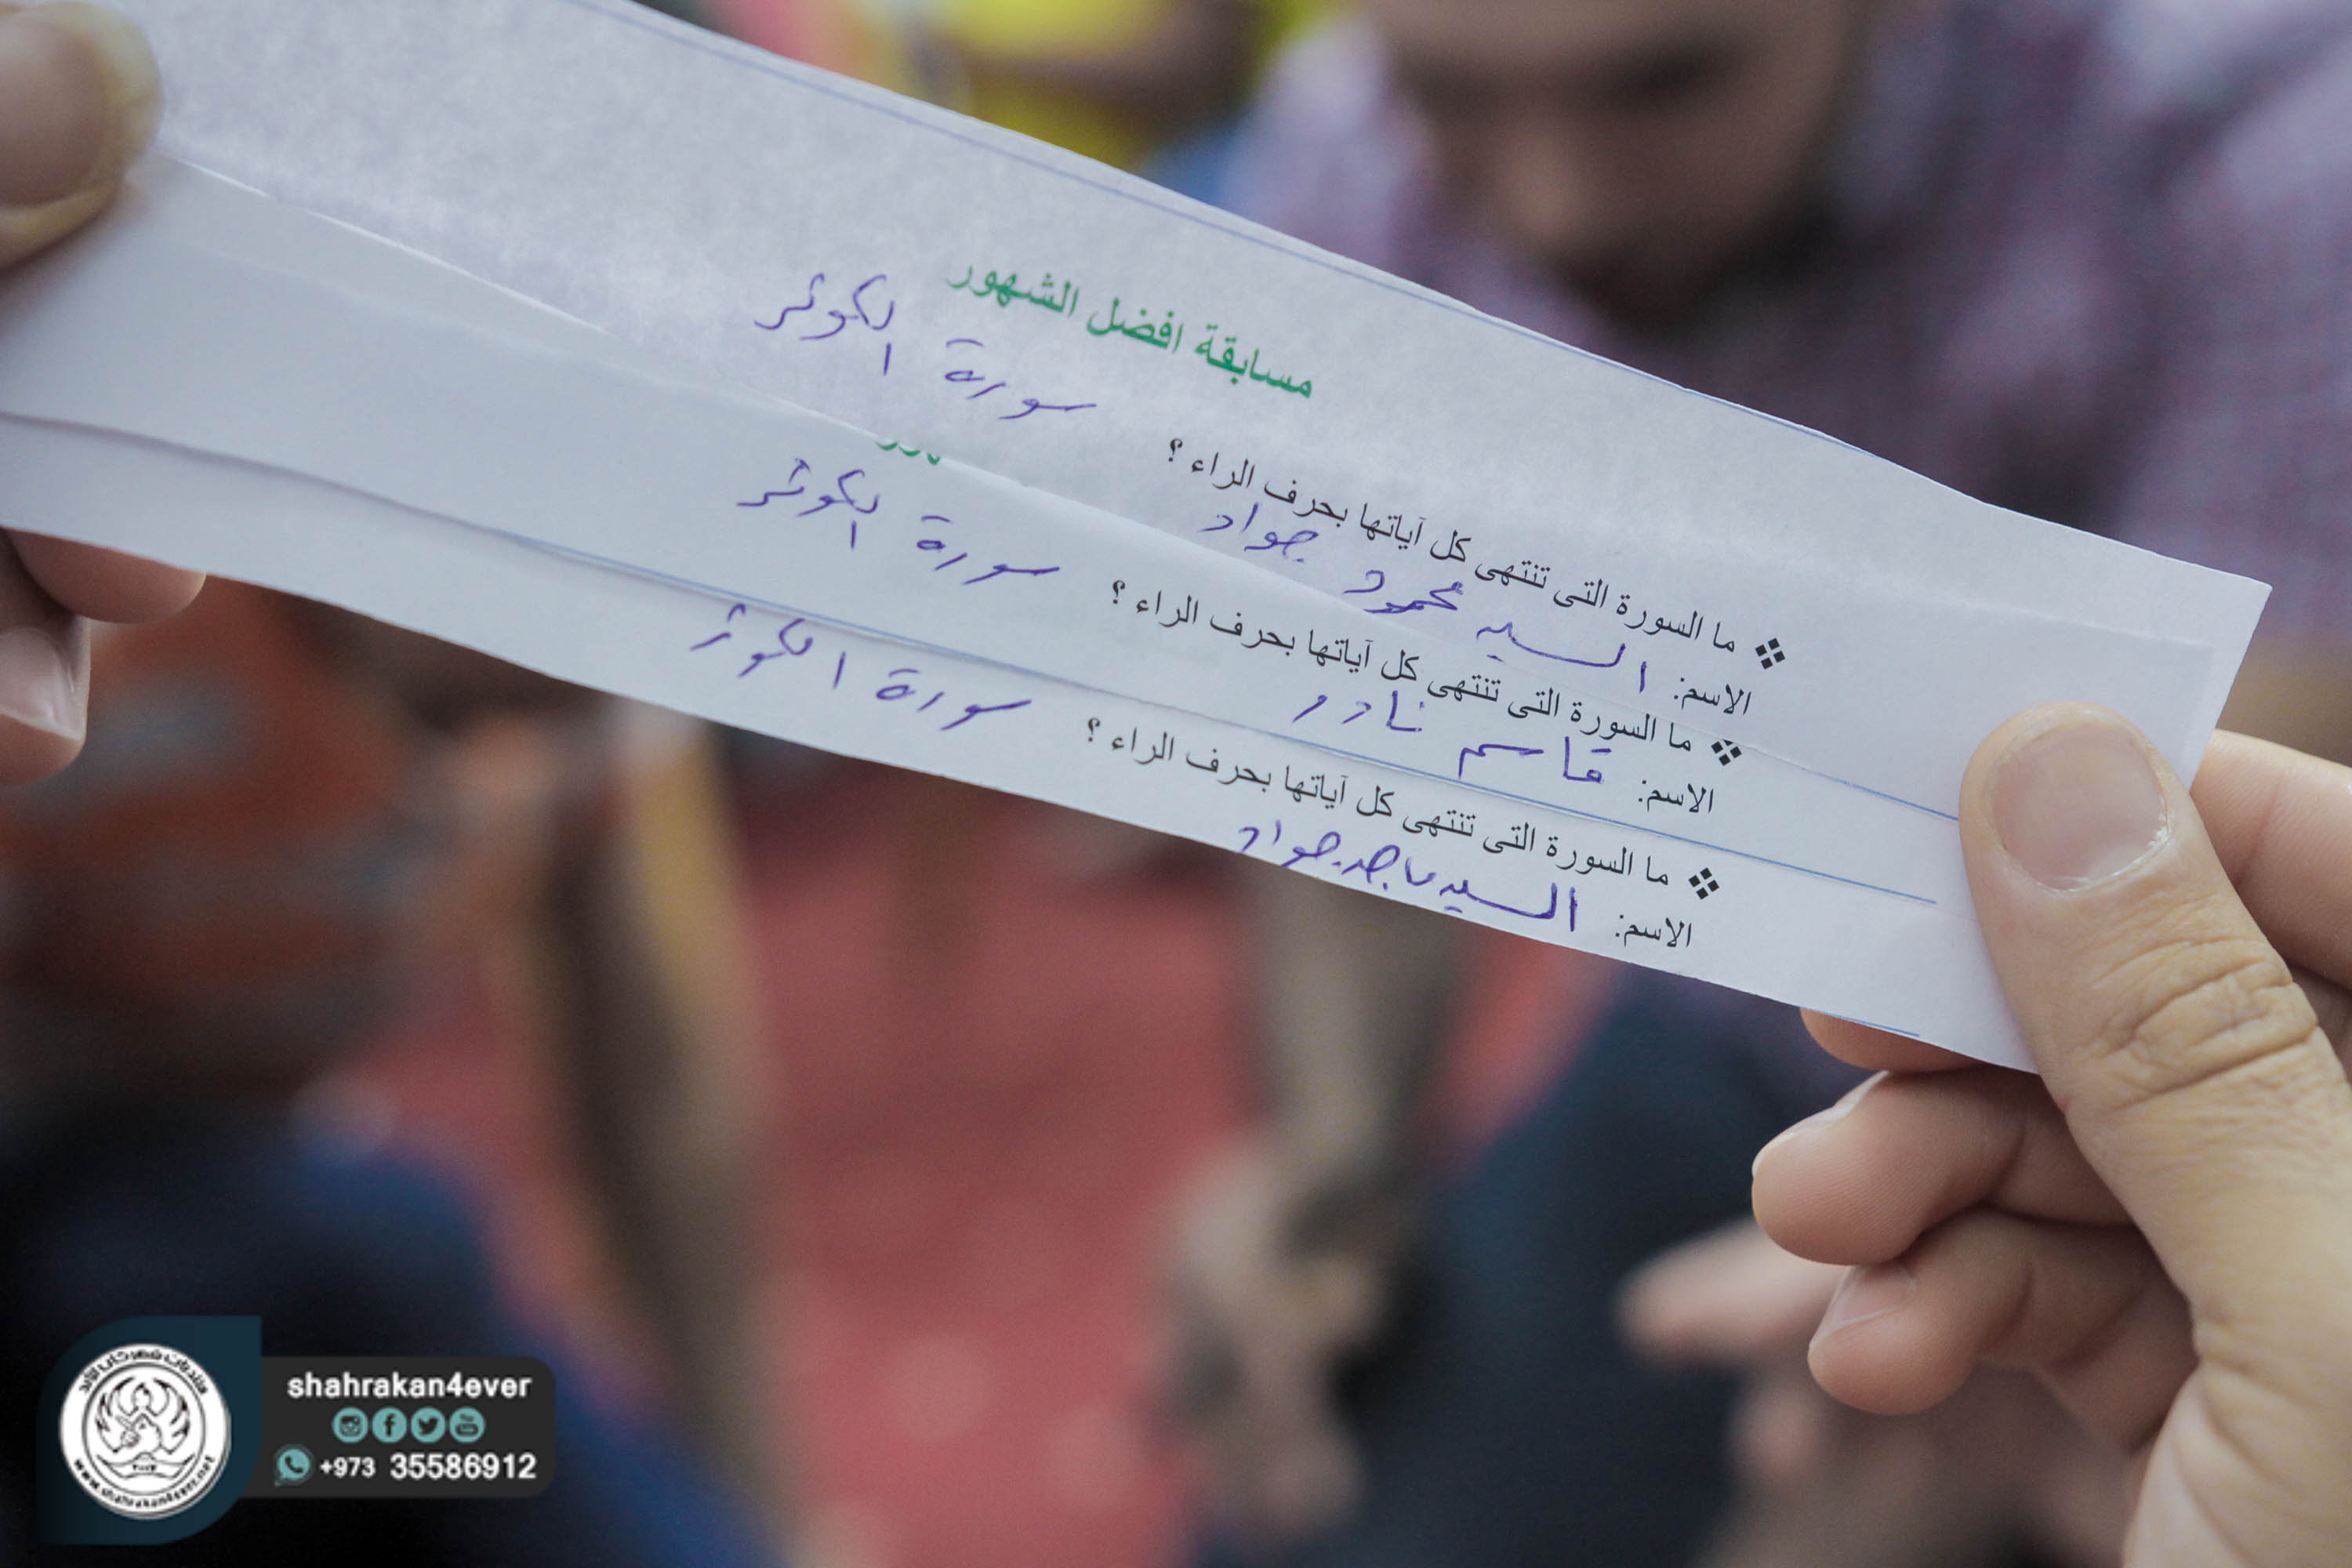 مسابقة افضل الشهور
ما السورة التى تنتهى كل آياتها بحرف الراء ؟ سورة الكوثر
الاسم: السيد محمود جواد
ما السورة التى تنتهى كل آياتها بحرف الراء ؟ سورة الكوثر
الاسم: قاسم نادر
ما السورة التى تنتهى كل آياتها بحرف الراء ؟ سورة الكوثر
الاسم: السيد ماجد جواد
shahrakan4ever
+973 35586912
منتديات شهركان للأبد
www.shahrakan4ever.net